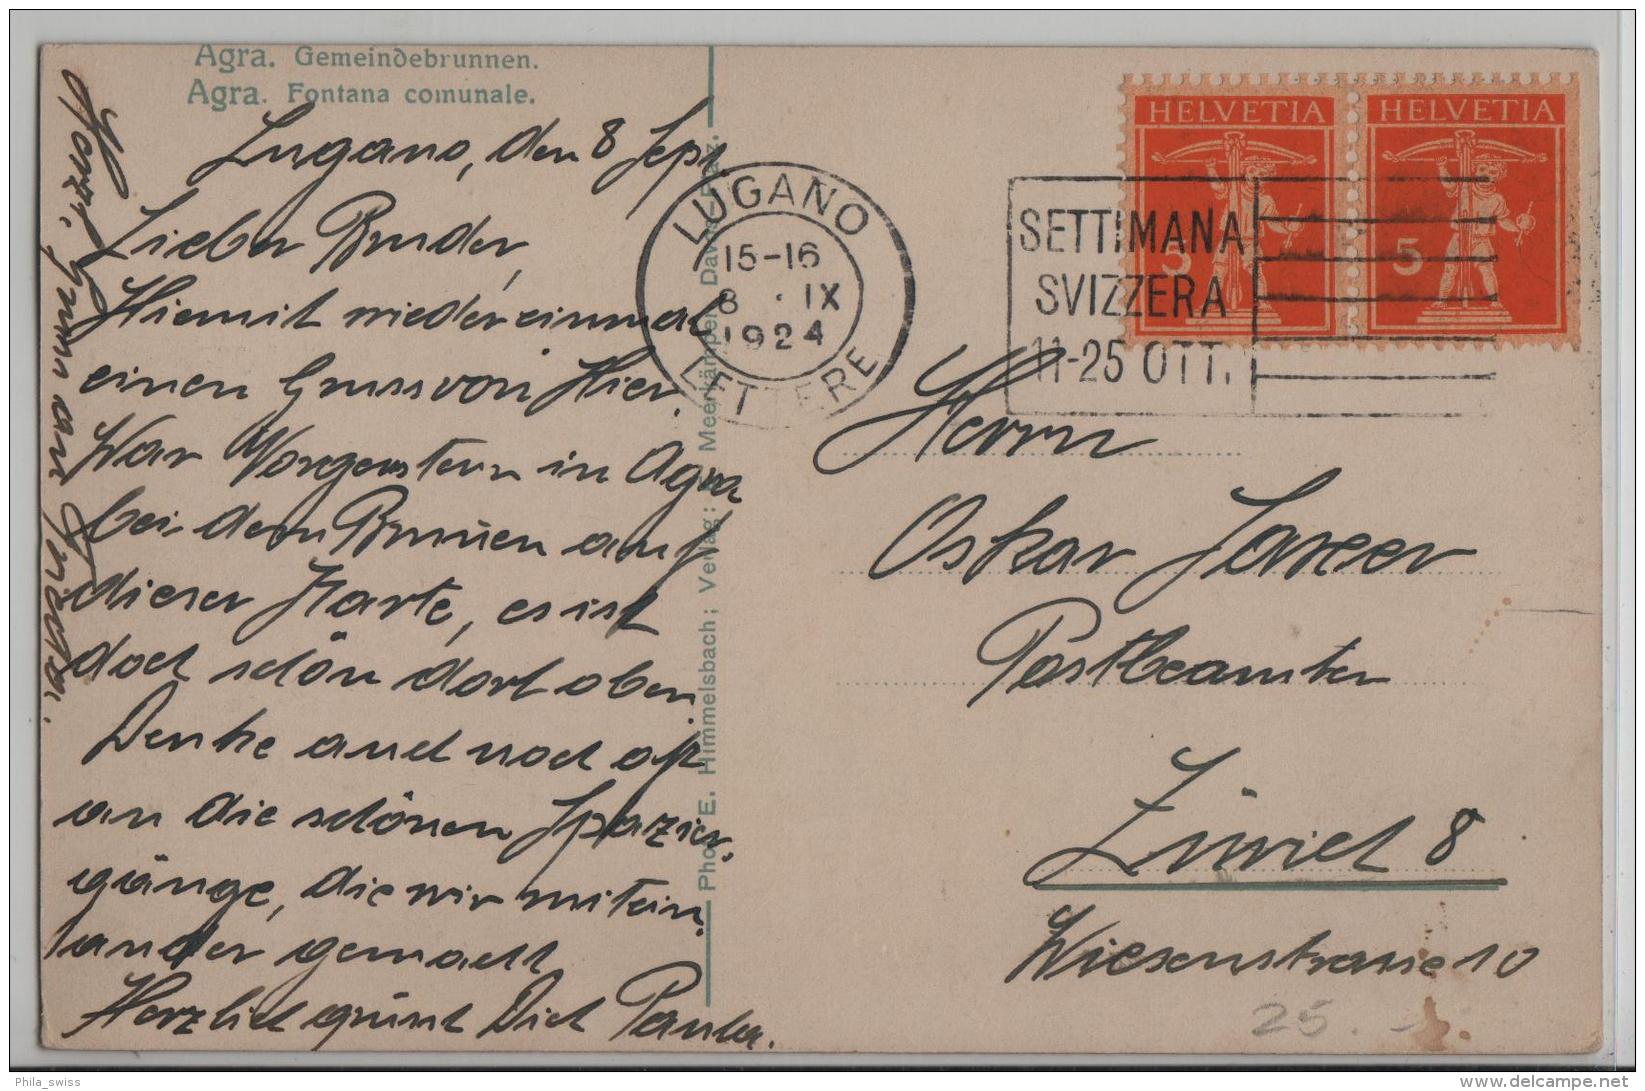 Agra. Gemeindebrunnen.
Agra. Fontana comunale.
Lugano, den 8 Sept
Lieber Bruder,
Hiemit wiedereinmal
einen Gruss von Hier.
War Morgenstern in Agra
bei dem Brunnen auf
dieser Karte, es ist
doch schön dort oben.
Denke auch noch oft
an die schönen Spazier-
gänge, die wir mitein-
ander gemacht
Herzlich grüsst Dich Paula.
Herzl. Gruss an
Phot. E. Himmelsbach; Verlag: Meerkämper, Davos-Platz.
LUGANO
15-16
8 . IX
1924
LETTERE
SETTIMANA
SVIZZERA
11-25 OTT.
HELVETIA
5
HELVETIA
5
Herrn
Oskar
Postbeamter
Zürich 8
Wiesenstrasse 10
25.-
Phila_swiss
delcampe.net